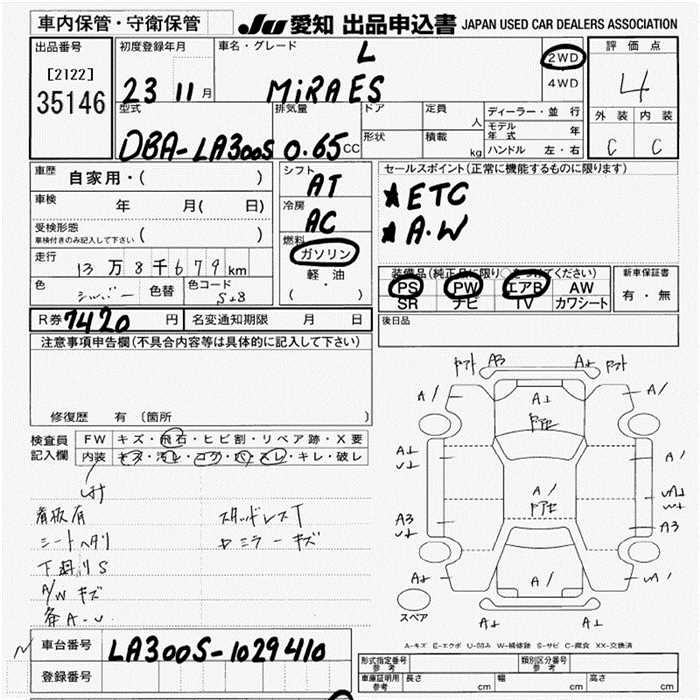 車内保管・守衛保管
JU 愛知 出品申込書 JAPAN USED CAR DEALERS ASSOCIATION
出品番号
[2122]
35146
初度登録年月
23 11 月
車名・グレード
L
MiRA ES
2WD
4WD
評価点
4
外装 内装
C C
型式
DBA-LA300S
排気量
0.65 CC
ドア
形状
定員
人
積載
kg
ディーラー・並行
モデル年式 年
ハンドル 左・右
車歴
自家用・( )
車検
年 月( 日)
受検形態
車検付きのみ記入して下さい ( )
走行
13万8千679km
色
シルバー
色替
色コード
S28
シフト
AT
冷房
AC
燃料
ガソリン
軽油
( ・ )
セールスポイント(正常に機能するものに限ります)
★ETC
★A.W
装備品(純正品に限り○をつけてください)
PS PW エアB AW
SR ナビ TV カワシート
新車保証書
有・無
R券 7420 円
名変通知期限 月 日
後日品
注意事項申告欄(不具合内容等は具体的に記入して下さい)
修復歴 有 (箇所 )
検査員記入欄
FW キズ・飛石・ヒビ割・リペア跡・X要
内装 キズ・汚レ・コゲ・穴・スレ・キレ・破レ
看板有 スタッドレスT
シートヘタリ ドミラーキズ
下廻りS
A/W キズ
各A.U
ドアト A3 A↓ ドアト
A/ A↓ A/
A↓ A/
U↓
A/
A3 A3
A↓ A/
A↓ A↓
スペア
A-キズ E-エクボ U-凹み W-補修跡 S-サビ C-腐食 XX-交換済
車台番号 LA300S-1029410
登録番号
型式指定番号 参考
類別区分番号 参考
車庫証明用 参考
長さ cm 幅 cm 高さ cm